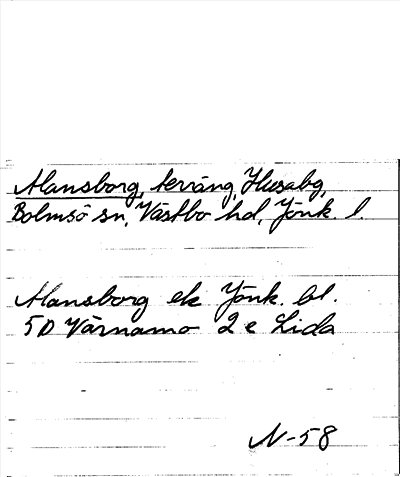 Alansborg, terräng, Husabg,
Bolmsö sn, Västbo hd, Jönk. l.
Alansborg ek Jönk. bl.
5D Värnamo 2 e Lida
N-58